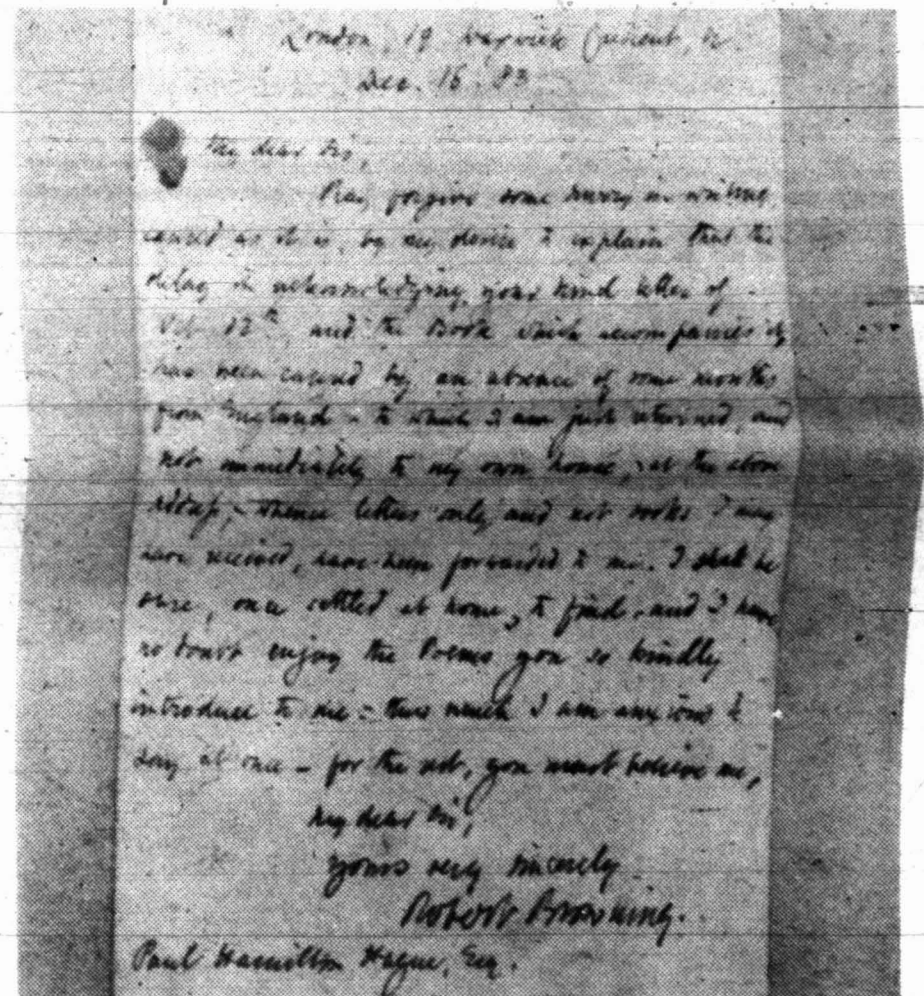 London, 19 Warwick Crescent, W.
Dec. 16. 83
My dear Sir,
Pray forgive some hurry in writing
caused as it is, by my desire to explain that the
delay in acknowledging your kind letter of
12th and the Book which accompanies it
has been caused by an absence of some months
from England - to which I am just returned, and
not immediately to my own house, at the above
address, - whence letters only and not books I may
have received, have been forwarded to me. I shall be
sure, once settled at home, to find, and I have
no doubt enjoy the Poems you so kindly
introduce to me: thus much I am anxious to
say at once - for the rest, you must believe me,
My dear Sir,
yours very sincerely
Robert Browning.
Paul Hamilton Hayne, Esq.